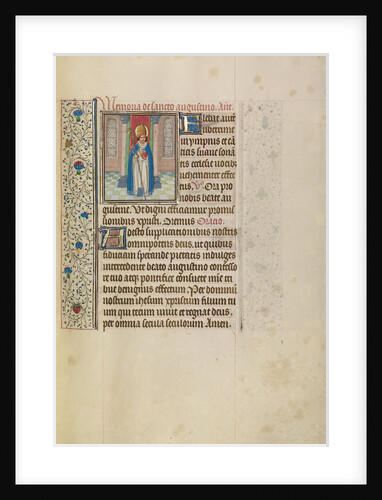 Memoria de sancto augustino. Añe.
Flebat aut
uberrime
in ympnis et cã
ticis suaue sonã
tis ecclesie vocib
vehementer affec
tus. V. Ora pro
nobis beate au
gustine. Vt digni efficiamur promis
sionibus xpristi. Oremus Oracio.
Adesto supplicationibus nostris
omnipotens deus. ut quibus
fiduciam sperande pietatis indulges
intercedente beato augustino confesso
re tuo atq3 pontifice consuete mise
due benignus effectum. Per dominū
nostrum ihesum xpristum filium tu
um qui tecum viuit et regnat deus.
per omnia secula seculorum Amen.